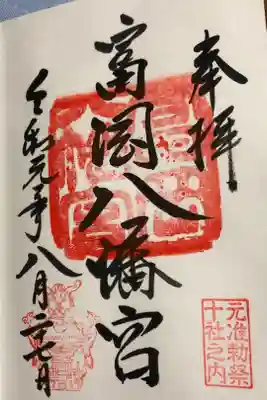 奉拝
元准勅祭
十社之内
富岡八幡宮
令和元年八月二七日